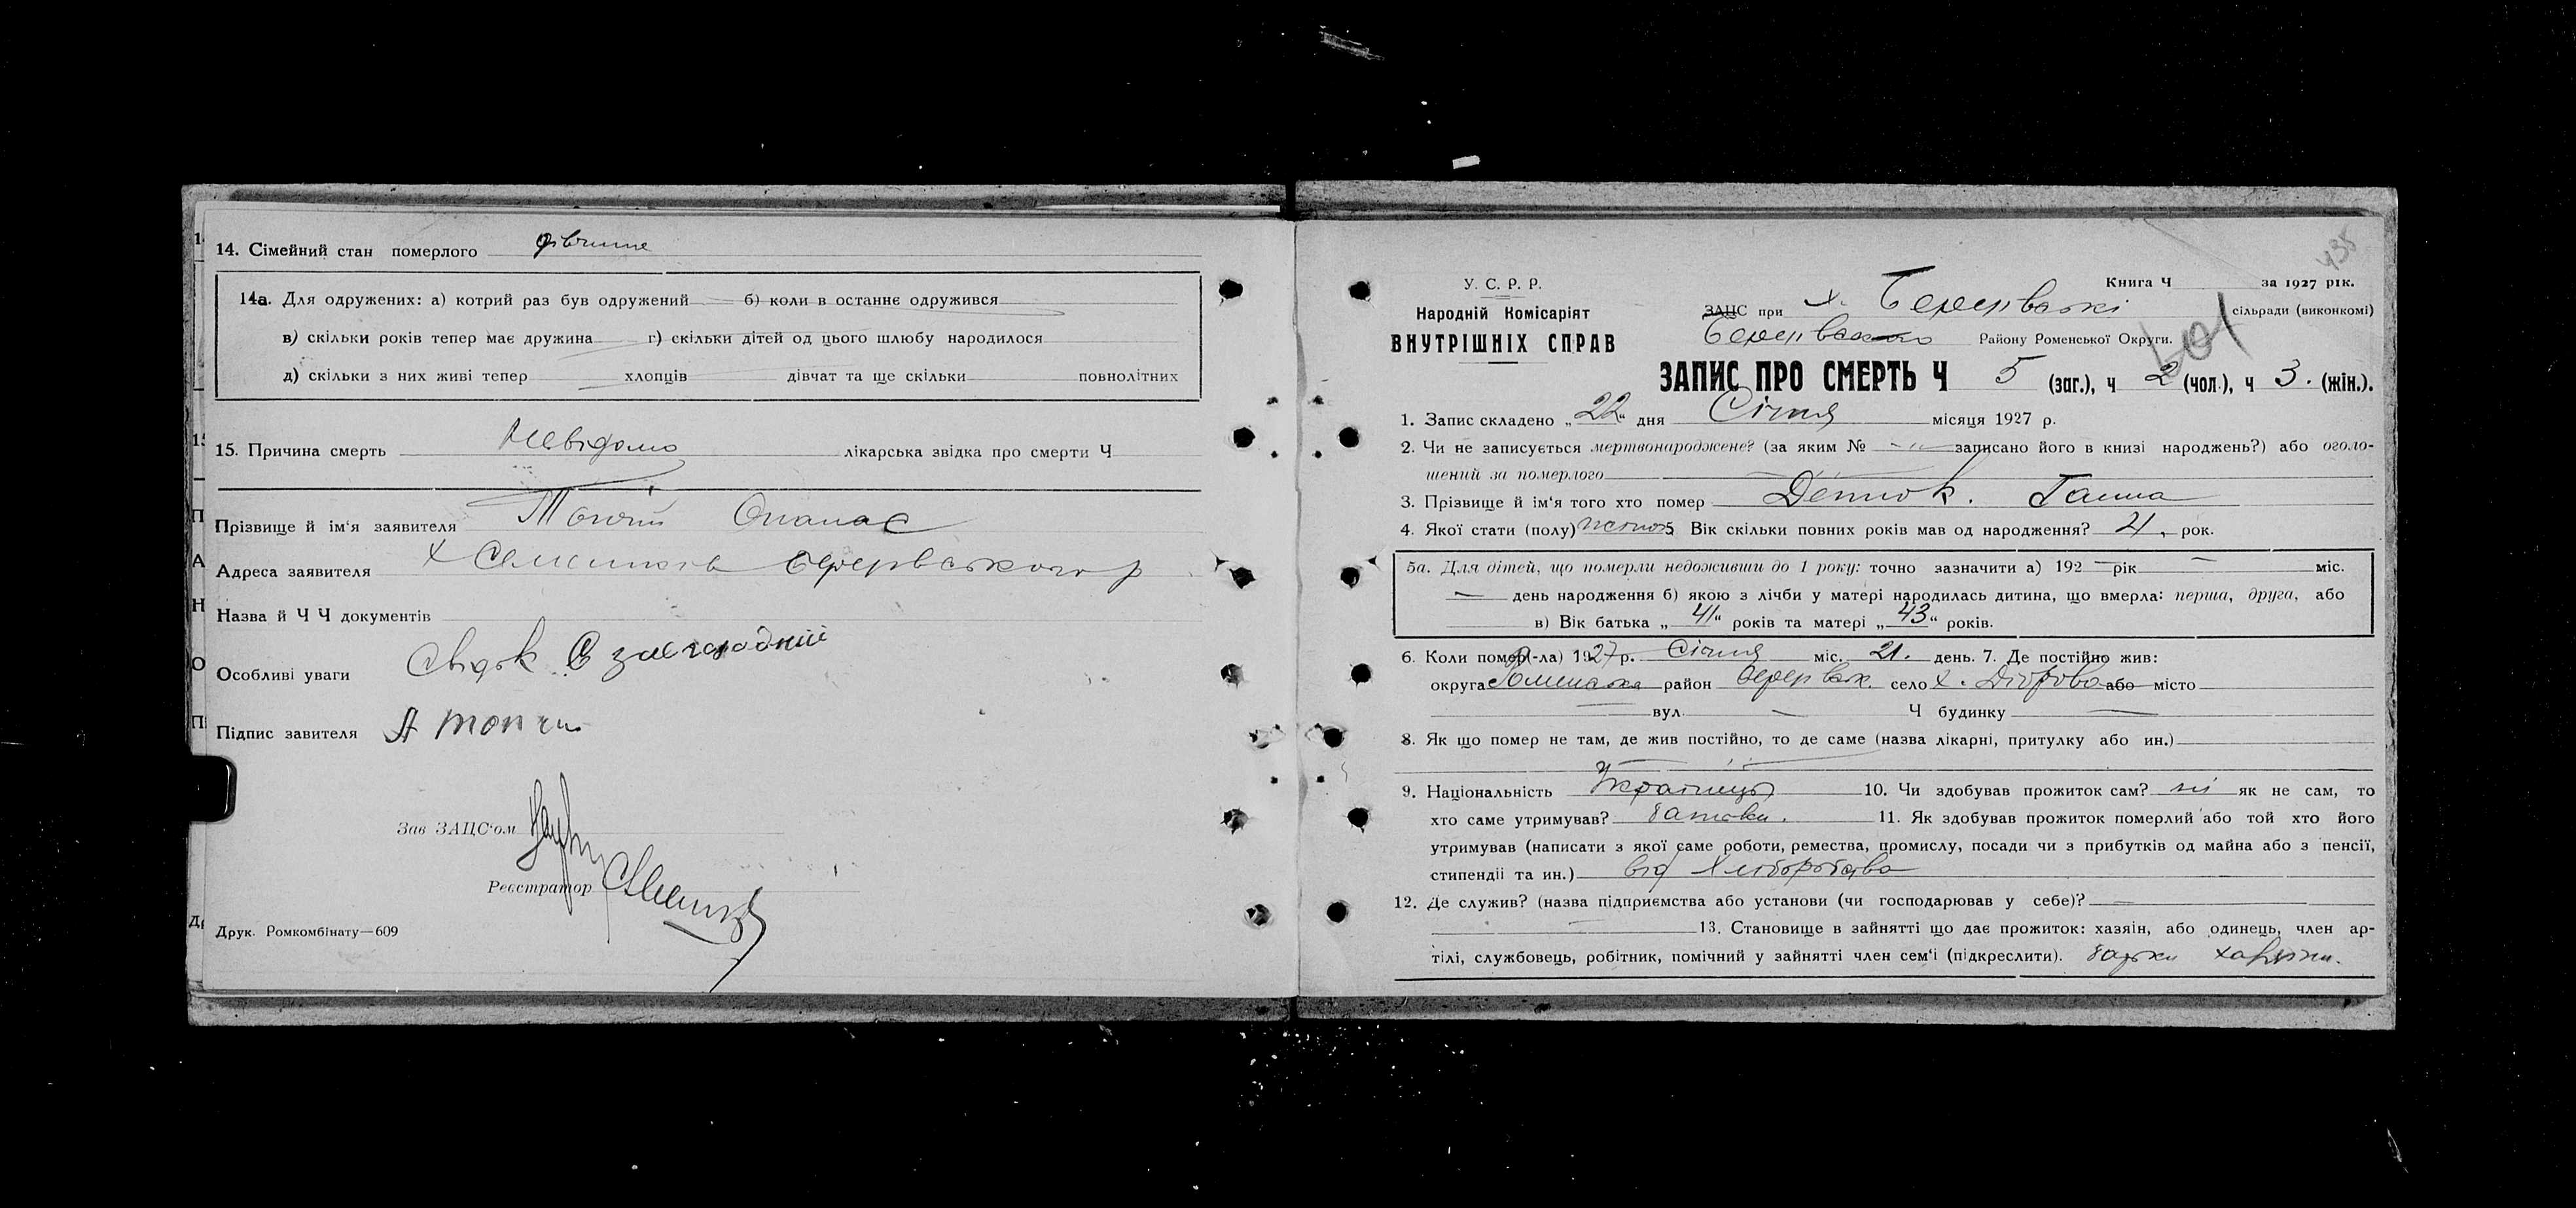 14. Сімейний стан померлого дівчина
14а. Для одружених: а) котрий раз був одружений б) коли в останнє одружився
в) скільки років тепер має дружина г) скільки дітей од цього шлюбу народилося
д) скільки з них живі тепер хлопців дівчат та ще скільки повнолітних
15. Причина смерть Невідомо лікарська звідка про смерти Ч
Прізвище й ім'я заявителя Опанас
Адреса заявителя х
Назва й Ч Ч документів
Особливі уваги Свідок
Підпис завителя А
Зав ЗАЦС'ом
Реєстратор
Друк. Ромкомбінату—609
435
У. С. Р. Р.
Народній Комісаріят
ВНУТРІШНІХ СПРАВ
Книга Ч за 1927 рік.
ЗАЦС при х. сільради (виконкомі)
Району Роменської Округи.
ЗАПИС ПРО СМЕРТЬ Ч 5 (заг.), ч 2 (чол.), ч 3. (жін.).
1. Запис складено „22“ дня Січня місяця 1927 р.
2. Чи не записується мертвонароджене? (за яким № записано його в книзі народжень?) або оголо-
шений за померлого
3. Прізвище й ім'я того хто помер Ганна
4. Якої стати (полу) 5 Вік скільки повних років мав од народження? 21, рок.
5а. Для дітей, що померли недоживши до 1 року: точно зазначити а) 192 рік міс.
день народження б) якою з лічби у матері народилась дитина, що вмерла: перша, друга, або
в) Вік батька „41“ років та матері „43“ років.
6. Коли помер(-ла) 1927 р. Січня міс. 21. день. 7. Де постійно жив:
округа Роменська район село х. Діброва або місто
вул. Ч будинку
8. Як що помер не там, де жив постійно, то де саме (назва лікарні, притулку або ин.)
9. Національність Українець 10. Чи здобував прожиток сам? ні як не сам, то
хто саме утримував? батьки. 11. Як здобував прожиток померлий або той хто його
утримував (написати з якої саме роботи, ремества, промислу, посади чи з прибутків од майна або з пенсії,
стипендії та ин.) від Хліборобства
12. Де служив? (назва підприємства або установи (чи господарював у себе)?
13. Становище в зайнятті що дає прожиток: хазяін, або одинець, член ар-
тілі, службовець, робітник, помічний у зайнятті член сем'ї (підкреслити). батьки хазяіни.